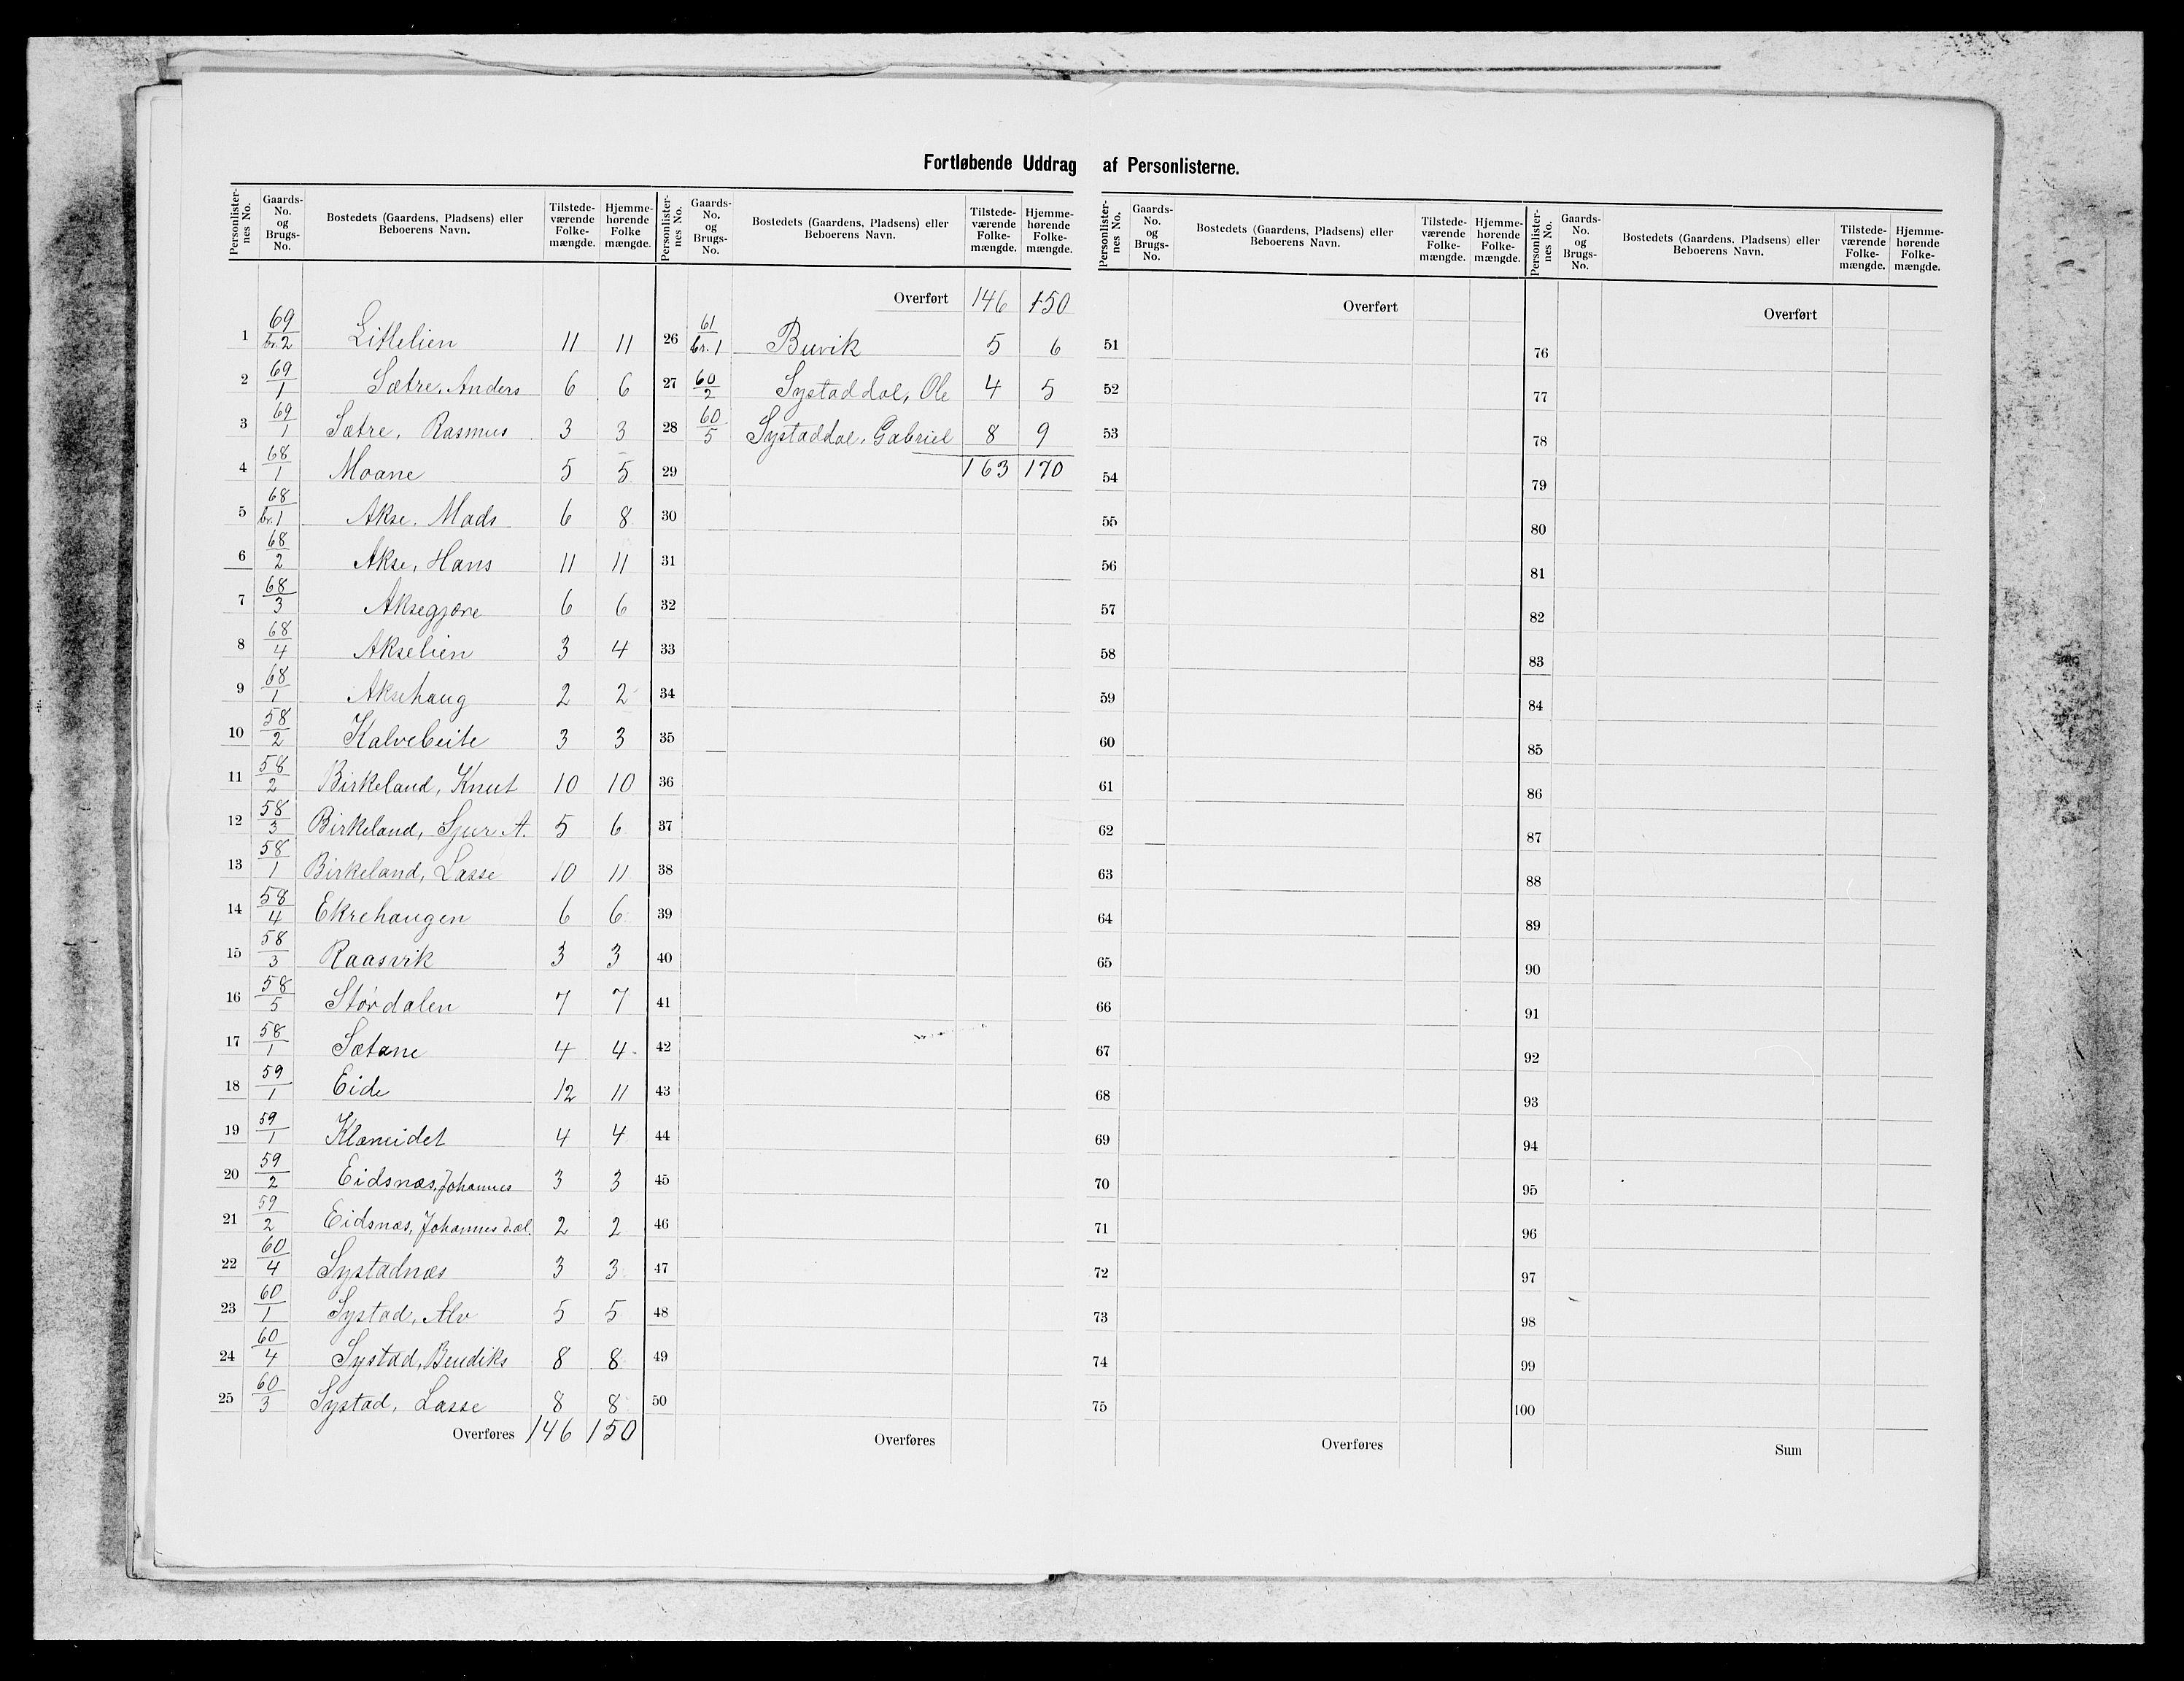 Fortløbende Uddrag af Personlisterne.
Personlisternes No. | Gaards-No. og Brugs-No. | Bostedets (Gaardens, Pladsens) eller Beboerens Navn. | Tilstedeværende Folkemængde. | Hjemmehørende Folkemængde.
1 69/br.2 Litlelien 11 11
2 69/1 Sætre, Anders 6 6
3 69/1 Sætre, Rasmus 3 3
4 68/1 Moane 5 5
5 68/br.1 Akse, Mads 6 8
6 68/2 Akse, Hans 11 11
7 68/3 Aksegjøre 6 6
8 68/4 Akselien 3 4
9 68/1 Aksehaug 2 2
10 58/2 Kalvebeite 3 3
11 58/2 Birkeland, Knut 10 10
12 58/3 Birkeland, Sjur A. 5 6
13 58/1 Birkeland, Lasse 10 11
14 58/4 Ekrehaugen 6 6
15 58/3 Raasvik 3 3
16 58/5 Størdalen 7 7
17 58/1 Sætane 4 4
18 59/1 Eide 12 11
19 59/1 Klæneidet 4 4
20 59/2 Eidsnæs, Johannes 3 3
21 59/2 Eidsnæs, Johannes d.æl. 2 2
22 60/4 Systadnæs 3 3
23 60/1 Systad, Alv 5 5
24 60/4 Systad, Bendiks 8 8
25 60/3 Systad, Lasse 8 8
Overføres 146 150
Personlisternes No. | Gaards-No. og Brugs-No. | Bostedets (Gaardens, Pladsens) eller Beboerens Navn. | Tilstedeværende Folkemængde. | Hjemmehørende Folkemængde.
Overført 146 150
26 61/br.1 Buvik 5 6
27 60/2 Systaddal, Ole 4 5
28 60/5 Systaddal, Gabriel 8 9
29 163 170
30
31
32
33
34
35
36
37
38
39
40
41
42
43
44
45
46
47
48
49
50
Overføres
Personlisternes No. | Gaards-No. og Brugs-No. | Bostedets (Gaardens, Pladsens) eller Beboerens Navn. | Tilstedeværende Folkemængde. | Hjemmehørende Folkemængde.
Overført
51
52
53
54
55
56
57
58
59
60
61
62
63
64
65
66
67
68
69
70
71
72
73
74
75
Overføres
Personlisternes No. | Gaards-No. og Brugs-No. | Bostedets (Gaardens, Pladsens) eller Beboerens Navn. | Tilstedeværende Folkemængde. | Hjemmehørende Folkemængde.
Overført
76
77
78
79
80
81
82
83
84
85
86
87
88
89
90
91
92
93
94
95
96
97
98
99
100
Sum